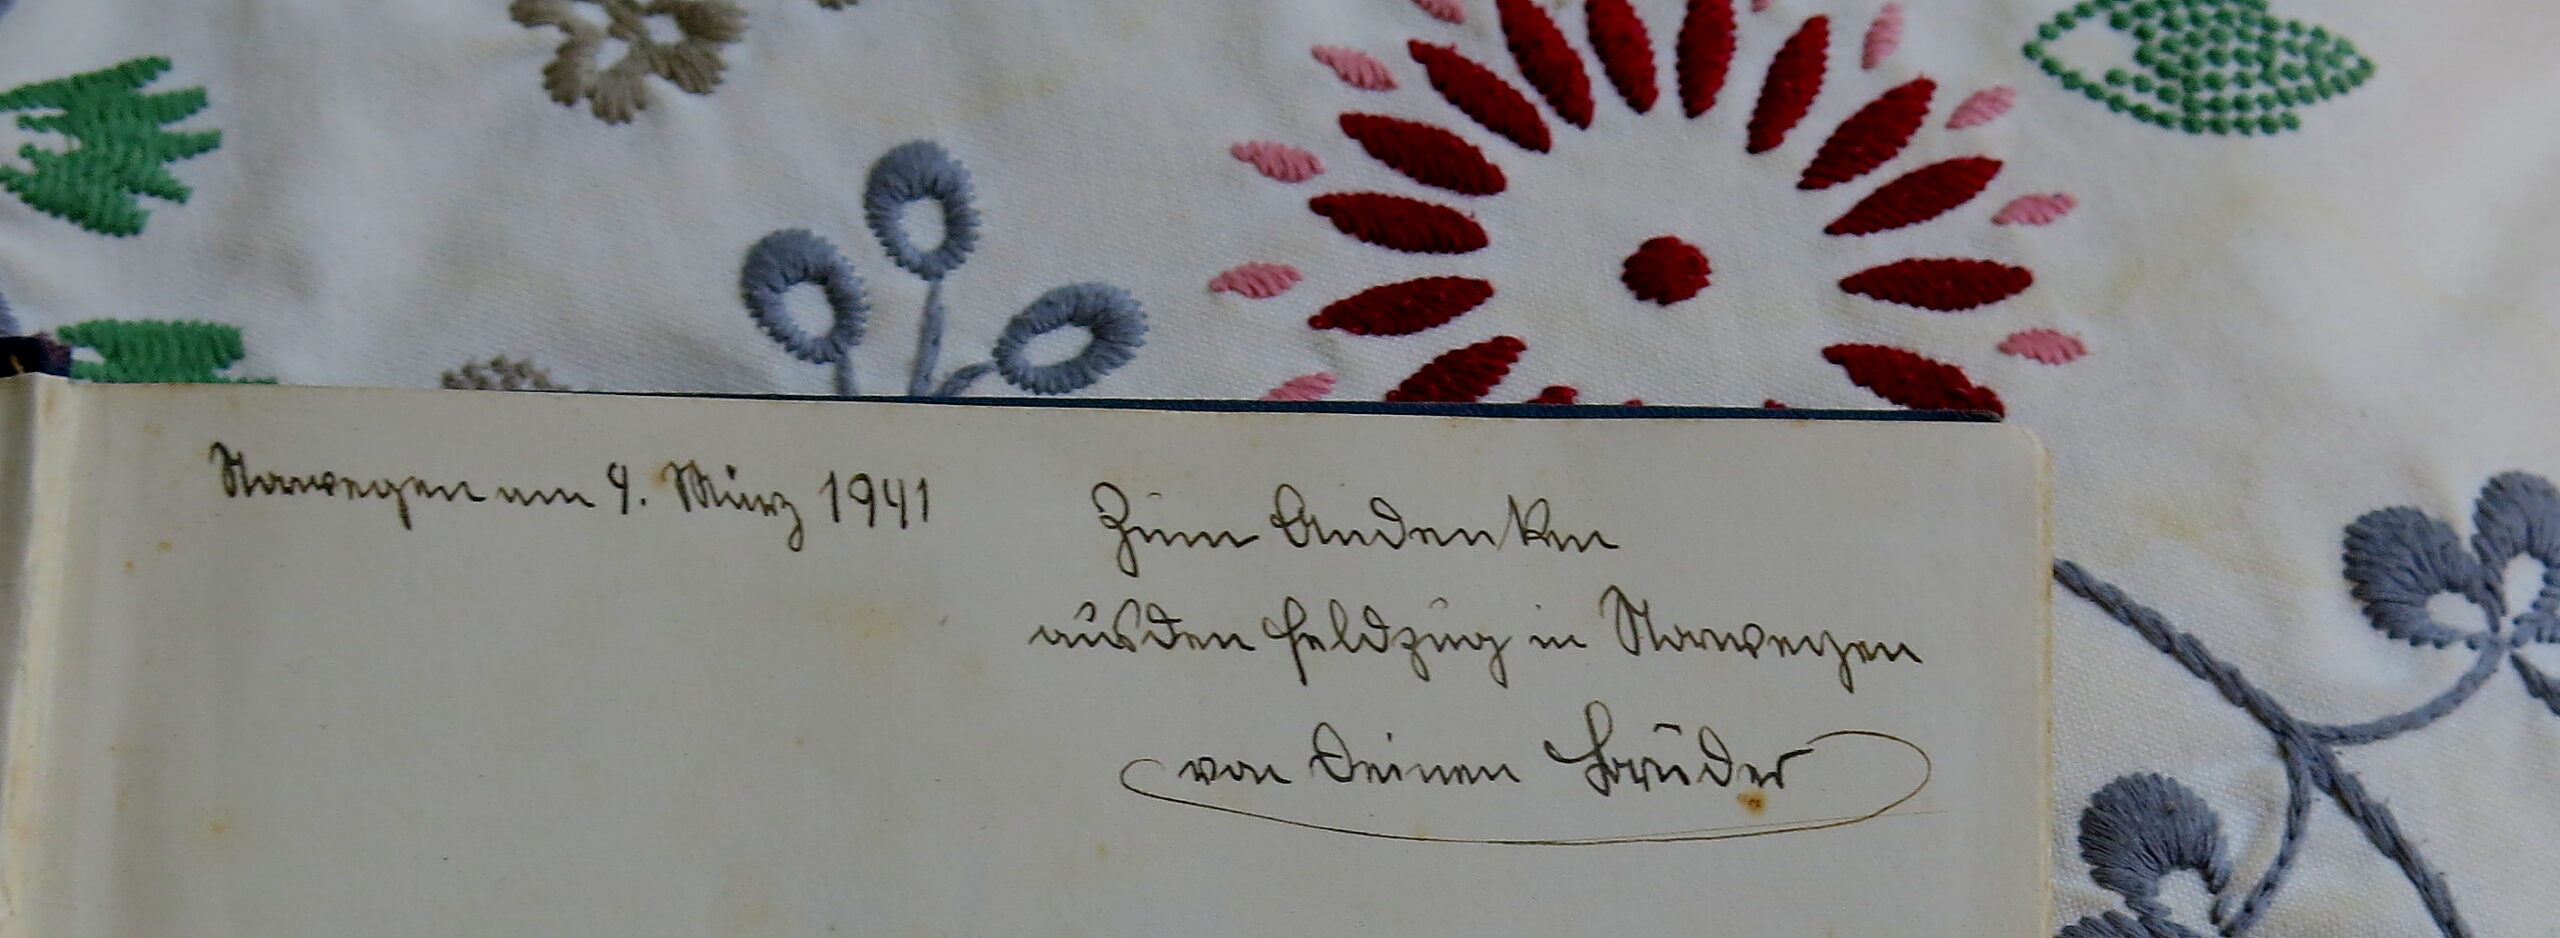 Norwegen am 4. März 1941
Zum Andenken
aus den Feldzug in Norwegen
von Deinen Bruder